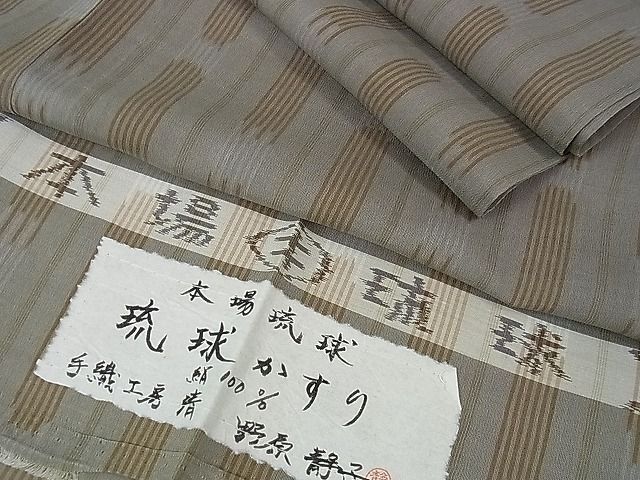 本場本琉球
本場琉球
琉球かすり
絹100%
手織工房 清
野原静子